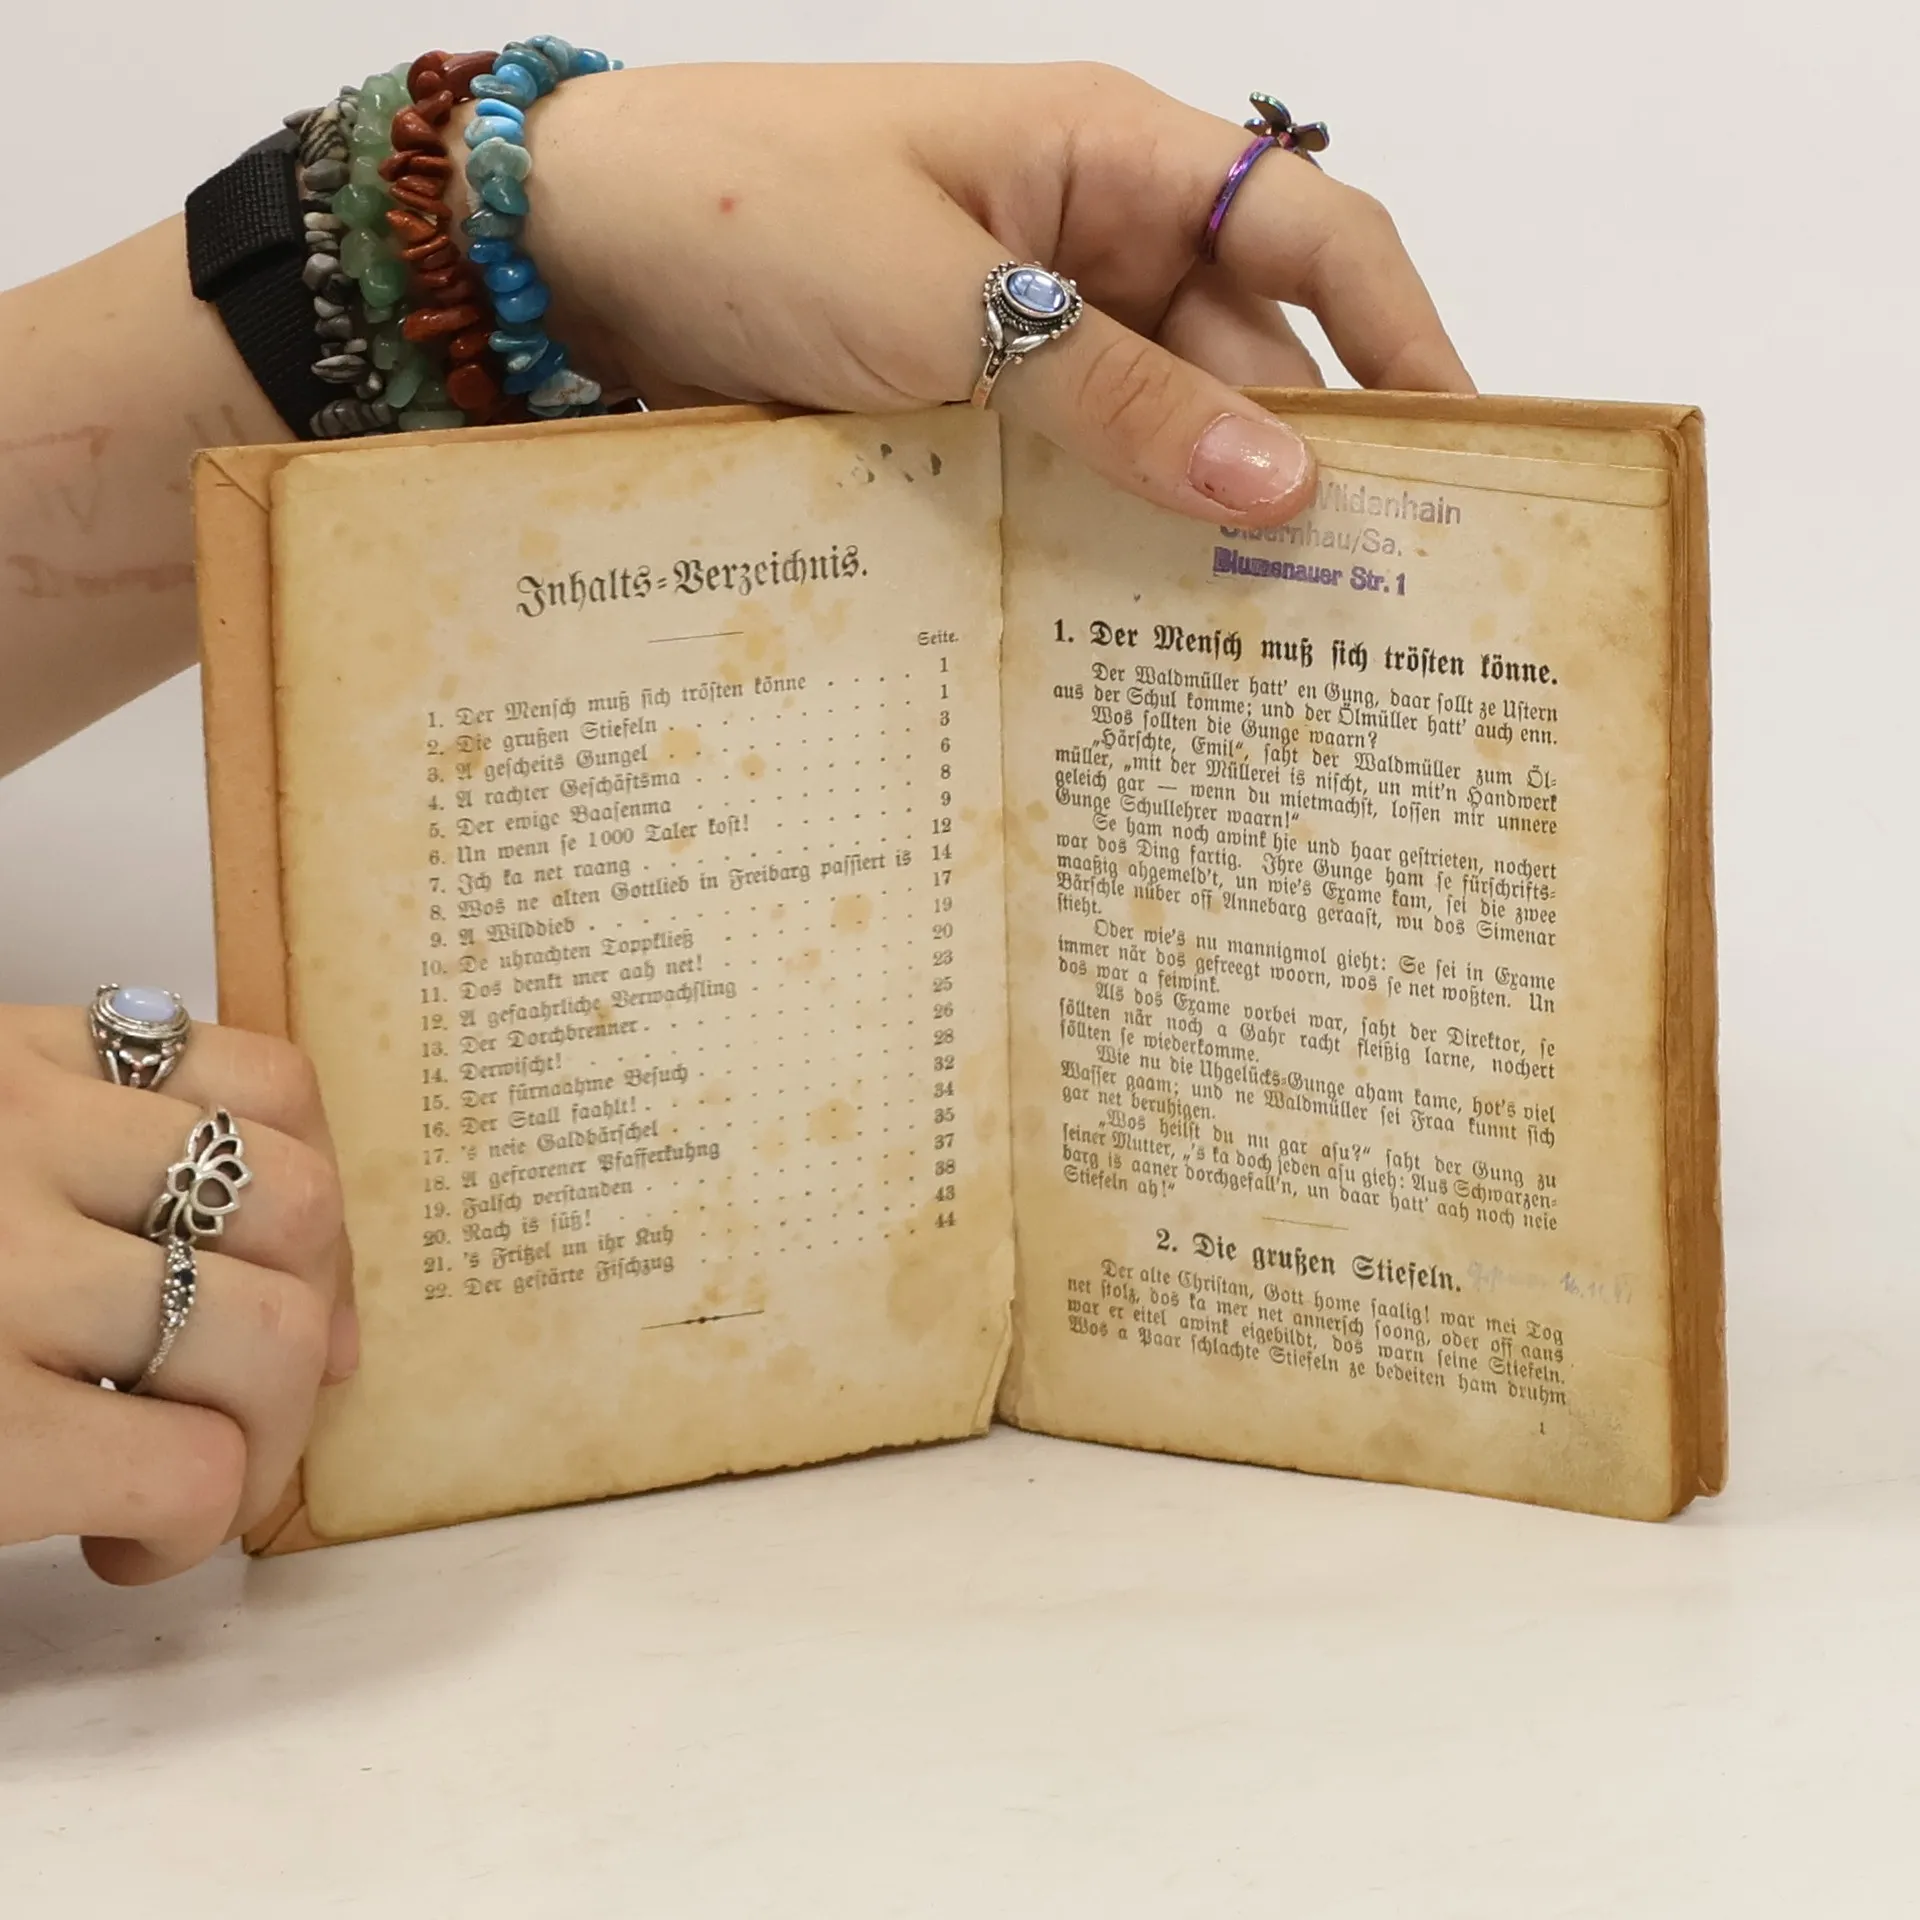 Inhalts-Verzeichnis.
Seite.
1. Der Mensch muß sich trösten könne . . . . 1
2. Die grußen Stiefeln . . . . . . . . . 1
3. A gescheits Gungel . . . . . . . . . 3
4. A rachter Geschäftsma . . . . . . . . 6
5. Der ewige Baasenma . . . . . . . . 8
6. Un wenn se 1000 Taler kost! . . . . . . 9
7. Ich ka net raang . . . . . . . . . . 12
8. Wos ne alten Gottlieb in Freibarg passiert is 14
9. A Wilddieb . . . . . . . . . . . 17
10. De uhrachten Toppkließ . . . . . . . 19
11. Dos denkt mer aah net! . . . . . . . 20
12. A gefaahrliche Verwachsling . . . . . . 23
13. Der Dorchbrenner . . . . . . . . . 25
14. Derwischt! . . . . . . . . . . . 26
15. Der fürnaahme Besuch . . . . . . . . 28
16. Der Stall faahlt! . . . . . . . . . . 32
17. 's neie Galdbärschel . . . . . . . . . 34
18. A gefrorener Pfafferkuhng . . . . . . . 35
19. Falsch verstanden . . . . . . . . . 37
20. Rach is süß! . . . . . . . . . . 38
21. 's Fritzel un ihr Kuh . . . . . . . . 43
22. Der gestärte Fischzug . . . . . . . . 44
Wildenhain
Olbernhau/Sa.
Blumenauer Str. 1
1. Der Mensch muß sich trösten könne.
Der Waldmüller hatt' en Gung, daar sollt ze Ustern
aus der Schul komme; und der Ölmüller hatt' auch enn.
Wos sollten die Gunge waarn?
„Härschte, Emil“, saht der Waldmüller zum Öl-
müller, „mit der Müllerei is nischt, un mit'n Handwerk
geleich gar — wenn du mietmachst, lossen mir unnere
Gunge Schullehrer waarn!“
Se ham noch awink hie und haar gestrieten, nochert
war dos Ding fartig. Ihre Gunge ham se fürschrifts-
maaßig ahgemeld't, un wie's Exame kam, sei die zwee
Bärschle nüber off Annebarg geraast, wu dos Simenar
stieht.
Oder wie's nu mannigmol gieht: Se sei in Exame
immer när dos gefreegt woorn, wos se net woßten. Un
dos war a feiwink.
Als dos Exame vorbei war, saht der Direktor, se
söllten när noch a Gahr racht fleißig larne, nochert
söllten se wiederkomme.
Wie nu die Uhgelücks-Gunge aham kame, hot's viel
Wasser gaam; und ne Waldmüller sei Fraa kunnt sich
gar net beruhigen.
„Wos heilst du nu gar asu?“ saht der Gung zu
seiner Mutter, „'s ka doch jeden asu gieh: Aus Schwarzen-
barg is aaner dorchgefall'n, un daar hatt' aah noch neie
Stiefeln ah!“
2. Die grußen Stiefeln.
Der alte Christan, Gott home saalig! war mei Tog
net stolz, dos ka mer net annersch soong, oder off aans
war er eitel awink eigebildt, dos warn seine Stiefeln.
Wos a Paar schlachte Stiefeln ze bedeiten ham druhm
1